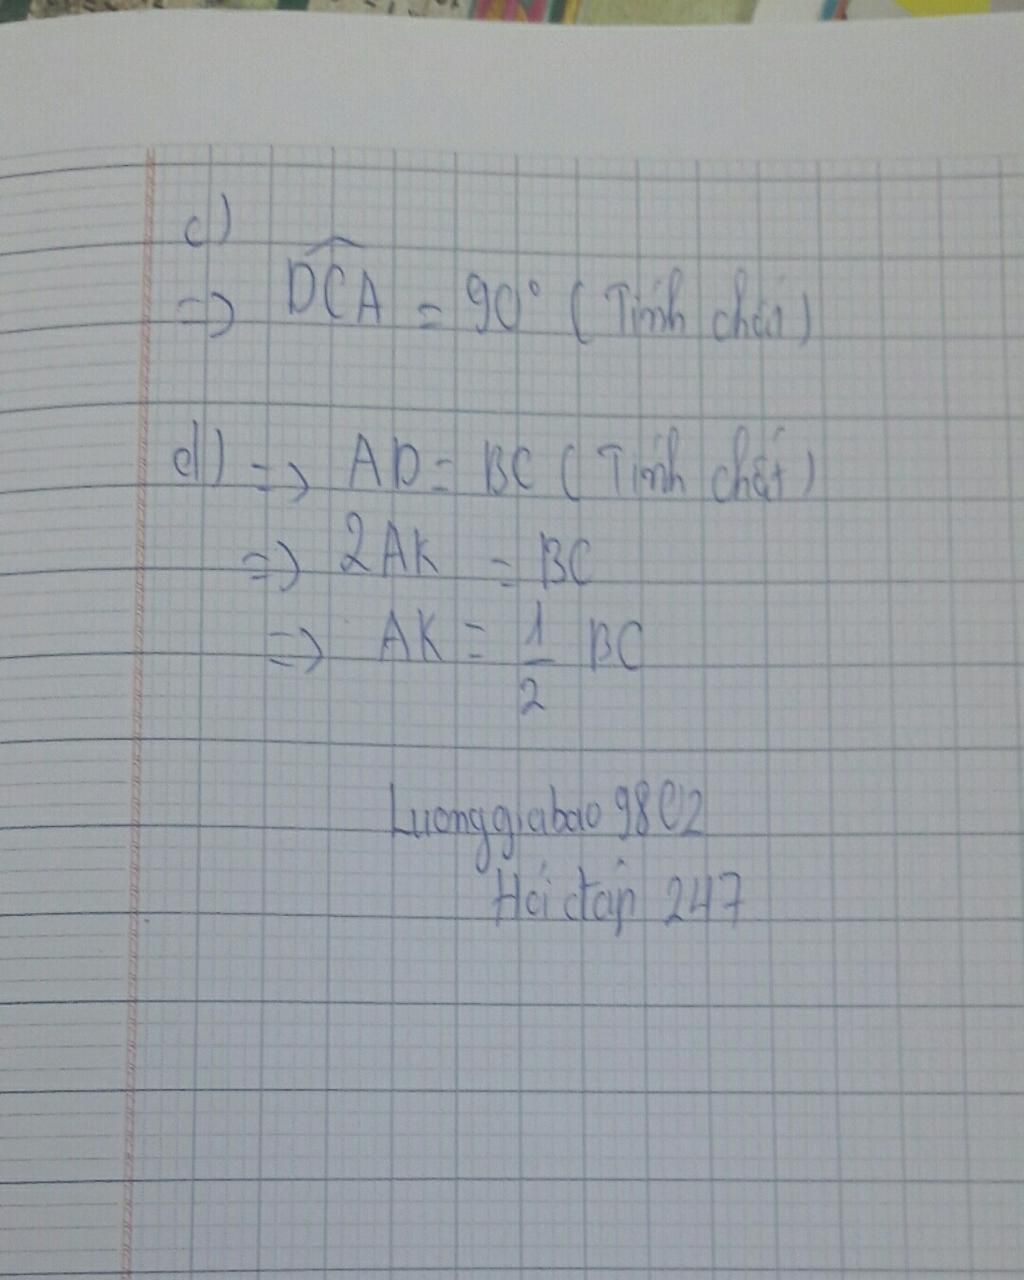 c)
=> DCA = 90° (Tính chất)
d) => AD = BC (Tính chất)
=> 2AK = BC
=> AK = 1/2 BC
Luonggiabao9802
Hỏi đáp 247